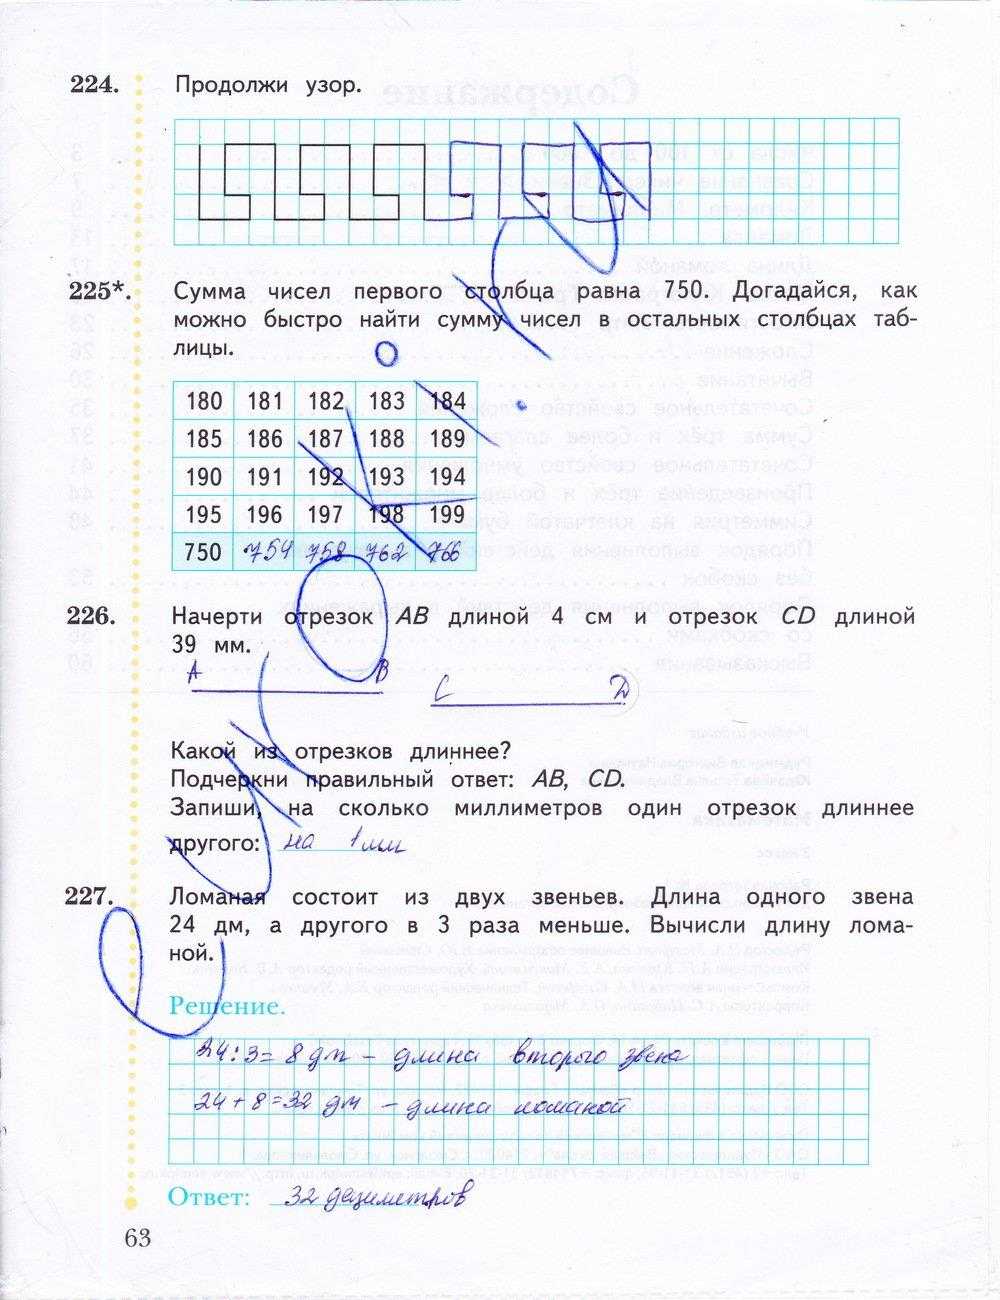 224. Продолжи узор.
225*. Сумма чисел первого столбца равна 750. Догадайся, как
можно быстро найти сумму чисел в остальных столбцах таб-
лицы.
180 181 182 183 184
185 186 187 188 189
190 191 192 193 194
195 196 197 198 199
750 754 758 762 766
226. Начерти отрезок AB длиной 4 см и отрезок CD длиной
39 мм.
A B C D
Какой из отрезков длиннее?
Подчеркни правильный ответ: AB, CD.
Запиши, на сколько миллиметров один отрезок длиннее
другого: на 1 мм
227. Ломаная состоит из двух звеньев. Длина одного звена
24 дм, а другого в 3 раза меньше. Вычисли длину лома-
ной.
Решение.
24:3= 8 дм – длина второго звена
24+8=32 дм – длина ломаной
Ответ: 32 дециметров
63